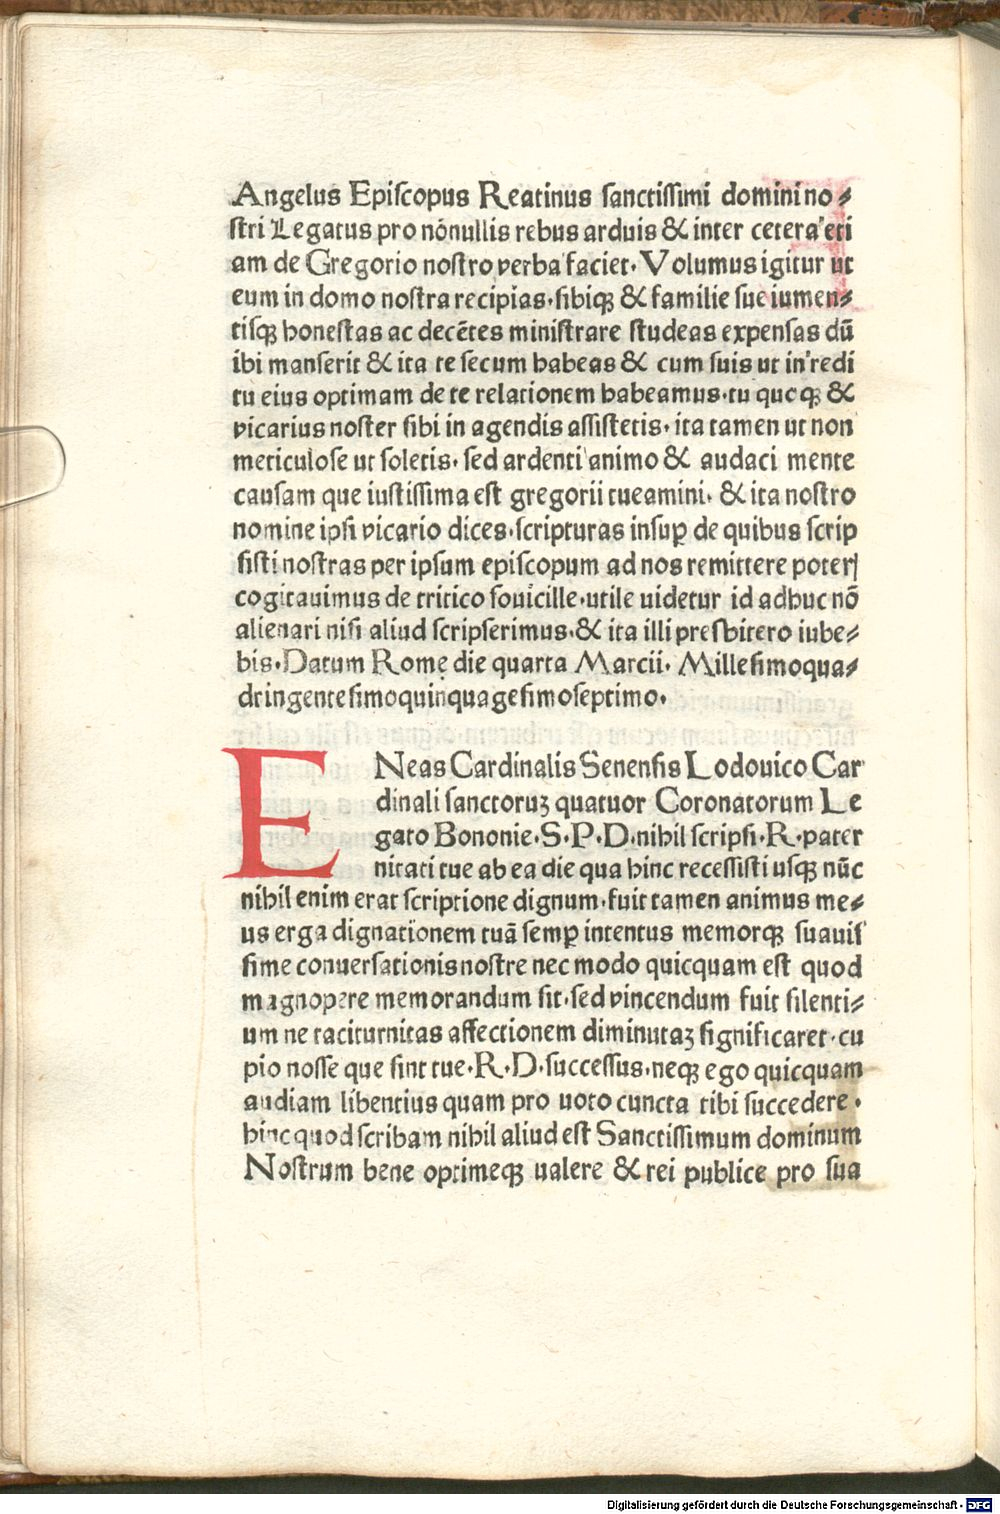 Angelus Episcopus Reatinus sanctissimi domini no⸗
stri Legatus pro nōnullis rebus arduis & inter cetera eti
am de Gregorio nostro verba faciet· Volumus igitur ut
eum in domo nostra recipias·sibiqȝ & familie sue iumen⸗
tisqȝ honestas ac decētes ministrare studeas expensas dū
ibi manserit & ita te secum habeas & cum suis ut in redi
tu eius optimam de te relationem habeamus·tu quoqȝ &
vicarius noster sibi in agendis assistetis· ita tamen ut non
meticulose ut soletis· sed ardenti animo & audaci mente
causam que iustissima est gregorii tueamini· & ita nostro
nomine ipsi vicario dices·scripturas insuꝑ de quibus scrip
sisti nostras per ipsum episcopum ad nos remittere poteris
cogitauimus de tritico souicille·utile uidetur id adhuc nō
alienari nisi aliud scripserimus·& ita illi presbitero iube⸗
bis·Datum Romę die quarta Marcii· Millesimoqua⸗
dringentesimoquinquagesimoseptimo·
ENeas Cardinalis Senensis Lodouico Car
dinali sanctoruȝ quatuor Coronatorum Le
gato Bononie·S·P·D·nihil scripsi·R·pater
nitati tue ab ea die qua hinc recessisti usqȝ nūc
nihil enim erat scriptione dignum·fuit tamen animus me⸗
us erga dignationem tuā semꝑ intentus memorqȝ suauis
sime conuersationis nostre nec modo quicquam est quod
magnopere memorandum sit·sed vincendum fuit silenti⸗
um ne taciturnitas affectionem diminutaȝ significaret·cu
pio nosse que sint tue·R·D·successus·neqȝ ego quicquam
audiam libentius quam pro uoto cuncta tibi succedere·
hinc quod scribam nihil aliud est Sanctissimum dominum
Nostrum bene optimeqȝ ualere & rei publice pro sua
Digitalisierung gefördert durch die Deutsche Forschungsgemeinschaft - DFG